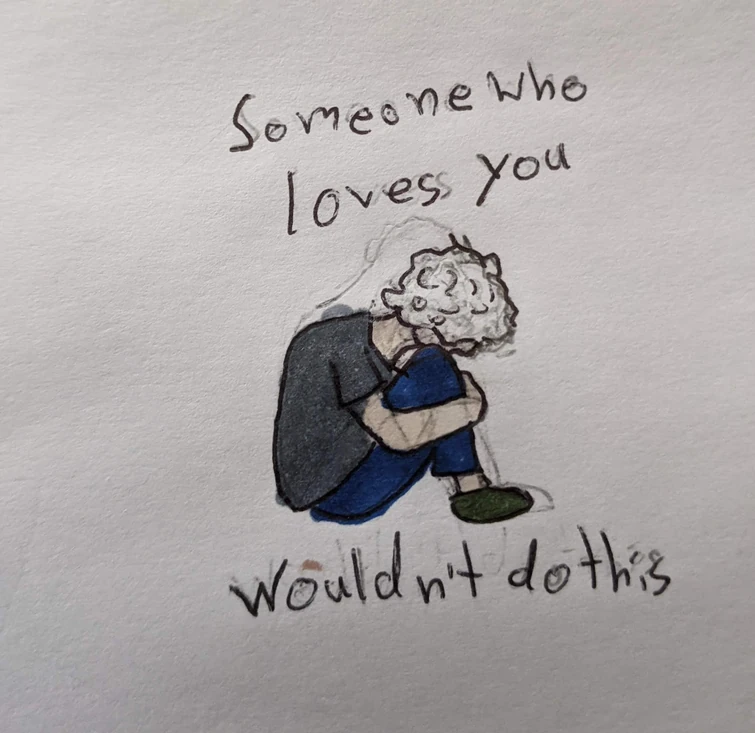 Someone who
loves you
wouldn't do this